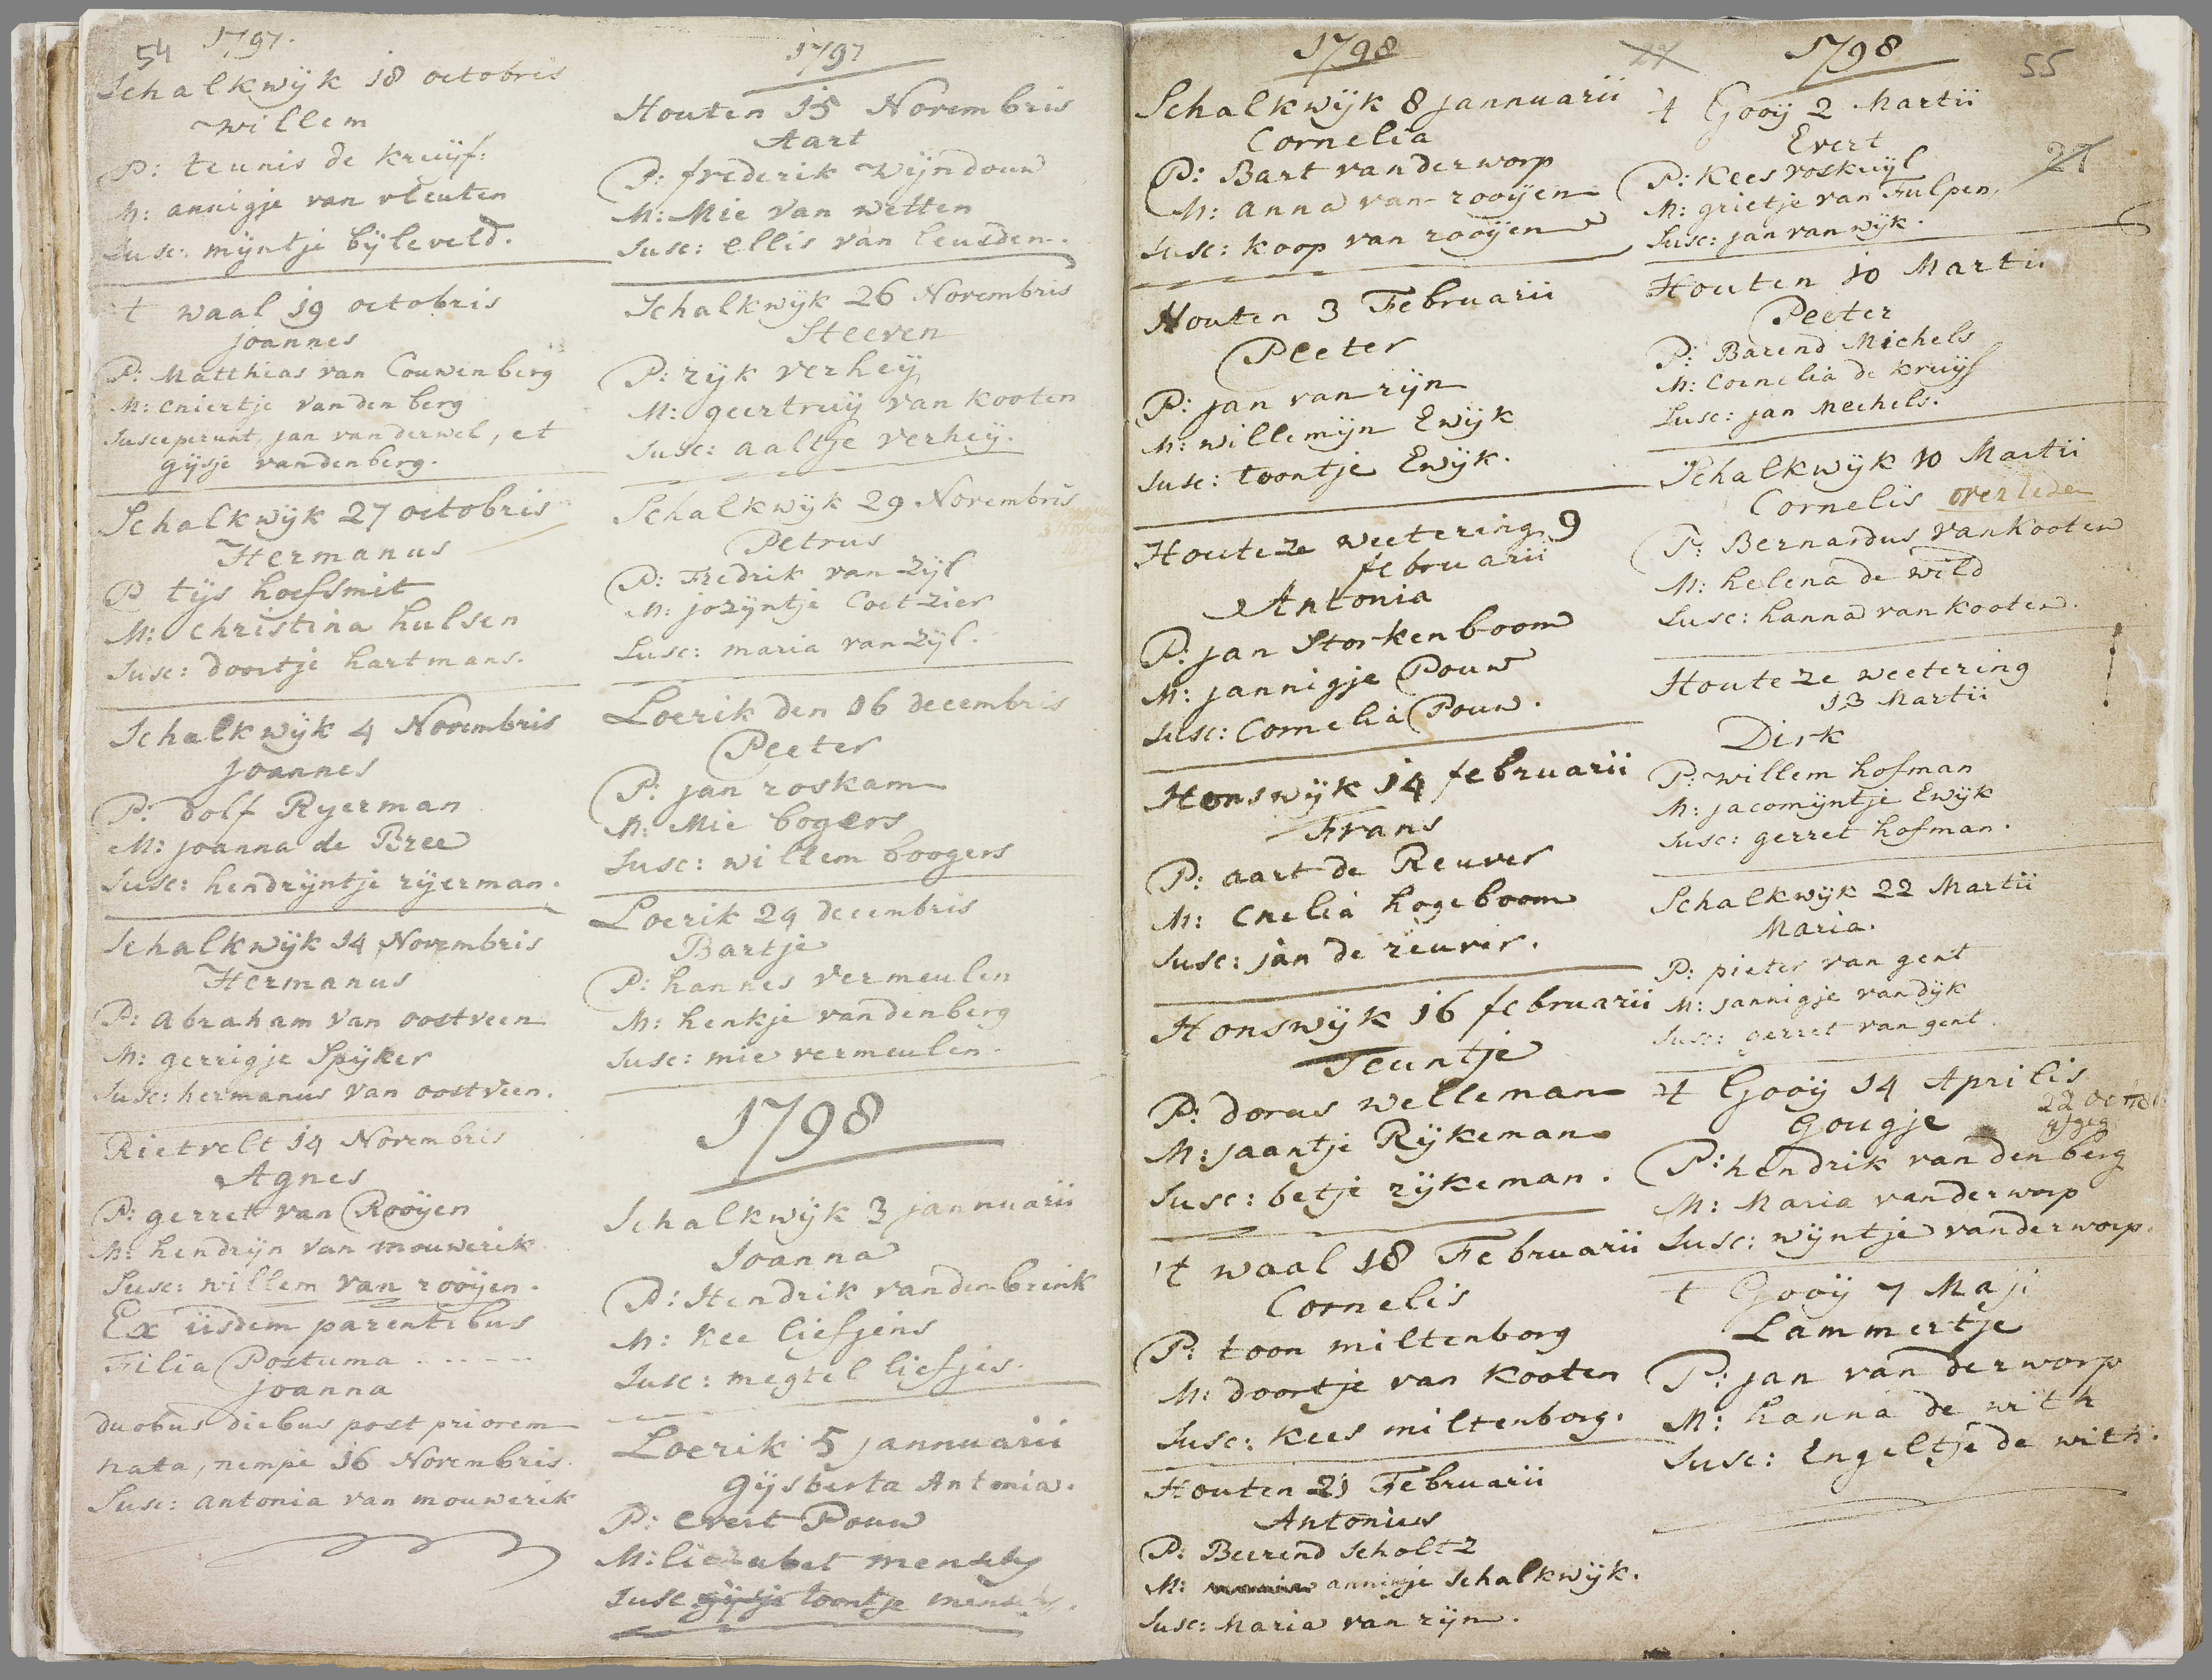 54
1797.
Schalkwijk 18 octobris
willem
P: teunis de kruijf:
M: annigje van vleuten
Susc: mijntje bijleveld.
't waal 19 octobris
joannes
P: Matthias van Couwenberg
M: cniertje van den berg
Susceperunt, jan van derwel, et
gijsje vandenberg.
Schalkwijk 27 octobris
Hermanus
P tijs hoefsmit
M: christina hulsen
Susc: doortje hartmans.
Schalkwijk 4 Novembris
joannes
P: dolf Ryerman
M: joanna de Bree
Susc: hendrijntje rijerman.
Schalkwijk 14 Novembris
Hermanus
P: abraham van oostveen
M: gerrigje Spijker
Susc: hermanus van oostveen.
Rietvelt 14 Novembris
Agnes
P: gerret van Rooijen
M: hendrijn van mouwerik
Susc: willem van rooijen.
Ex iisdem parentibus
Filia Postuma . . . . .
joanna
duobus diebus post priorem
nata, nempe 16 Novembris.
Susc: antonia van mouwerik
1797
Houten 15 Novembris
Aart
P: frederik wijndouw
M: Mie van wetten
Susc: ellis van leusden.
Schalkwijk 26 Novembris
Steeven
P: rijk verheij
M: geertruij van kooten
Susc: aaltje verheij.
Schalkwijk 29 Novembris
Petrus
P: Fredrik van zijl
M: jozijntje Coetzier
Susc: maria van zijl.
Loerik den 16 decembris
Peeter
P: jan roskam
M: Mie bogers
Susc: willem boogers
Loerik 24 decembris
Bartje
P: hannes vermeulen
M: henkje vandenberg
Susc: mie vermeulen.
1798
Schalkwijk 3 jannuarii
Joanna
P: Hendrik vanden brink
M: Kee liefjens
Susc: megtel liefjes.
Loerik 5 jannuarii
gijsberta Antonia.
P: evert Pouw
M: liezabet
Susc gijsje toontje
1798
Schalkwijk 8 jannuarii
Cornelia
P: Bart vanderworp
M: anna van rooijen
Susc: koop van rooijen
Houten 3 Februarii
Peeter
P: jan van rijn
M: willemijn Ewijk
Susc: toontje Ewijk.
Houteze weetering 9
februarii
Antonia
P: jan Storkenboom
M: jannigje Pouw
Susc: Cornelia Pouw.
Honswijk 14 februarii
Frans
P: aart de Reuver
M: Cnelia hogeboom
Susc: jan de reuver.
Honswijk 16 februarii
Teuntje
P: dorus welleman
M: jaantje Rijkeman
Susc: betje rijkeman.
't waal 18 Februarii
Cornelis
P: toon miltenborg
M: doortje van kooten
Susc: kees miltenborg.
Houten 21 Februarii
Antonius
P: Beerend Scholtz
M: anninje Schalkwijk.
Susc: Maria van rijn.
1798
55
't Gooij 2 Martii
Evert
27
P: Kees roskuijl
M: grietje van Tulpen,
Susc: jan van wijk.
Houten 10 Martii
Peeter
P: Barend Michels
M: Cornelia de kruijf
Susc: jan Mechels.
Schalkwijk 10 Martii
Cornelis overleden
P: Bernardus van Kooten
M: helena de wild
Susc: hanna van kooten.
Houteze weetering
13 Martii
Dirk
P: willem hofman
M: jacomijntje Ewijk
Susc: gerret hofman.
Schalkwijk 22 Martii
Maria.
P: pieter van gent
M: jannigje van dijk
Susc: gerret van gent.
't Gooij 14 Aprilis
Gougje
P: hendrik van den berg
M: Maria vanderworp
Susc: wijntje vanderworp.
t Gooij 7 Maji
Lammertje
P: jan van derworp
M: hanna de with
Susc: Engeltje de with.